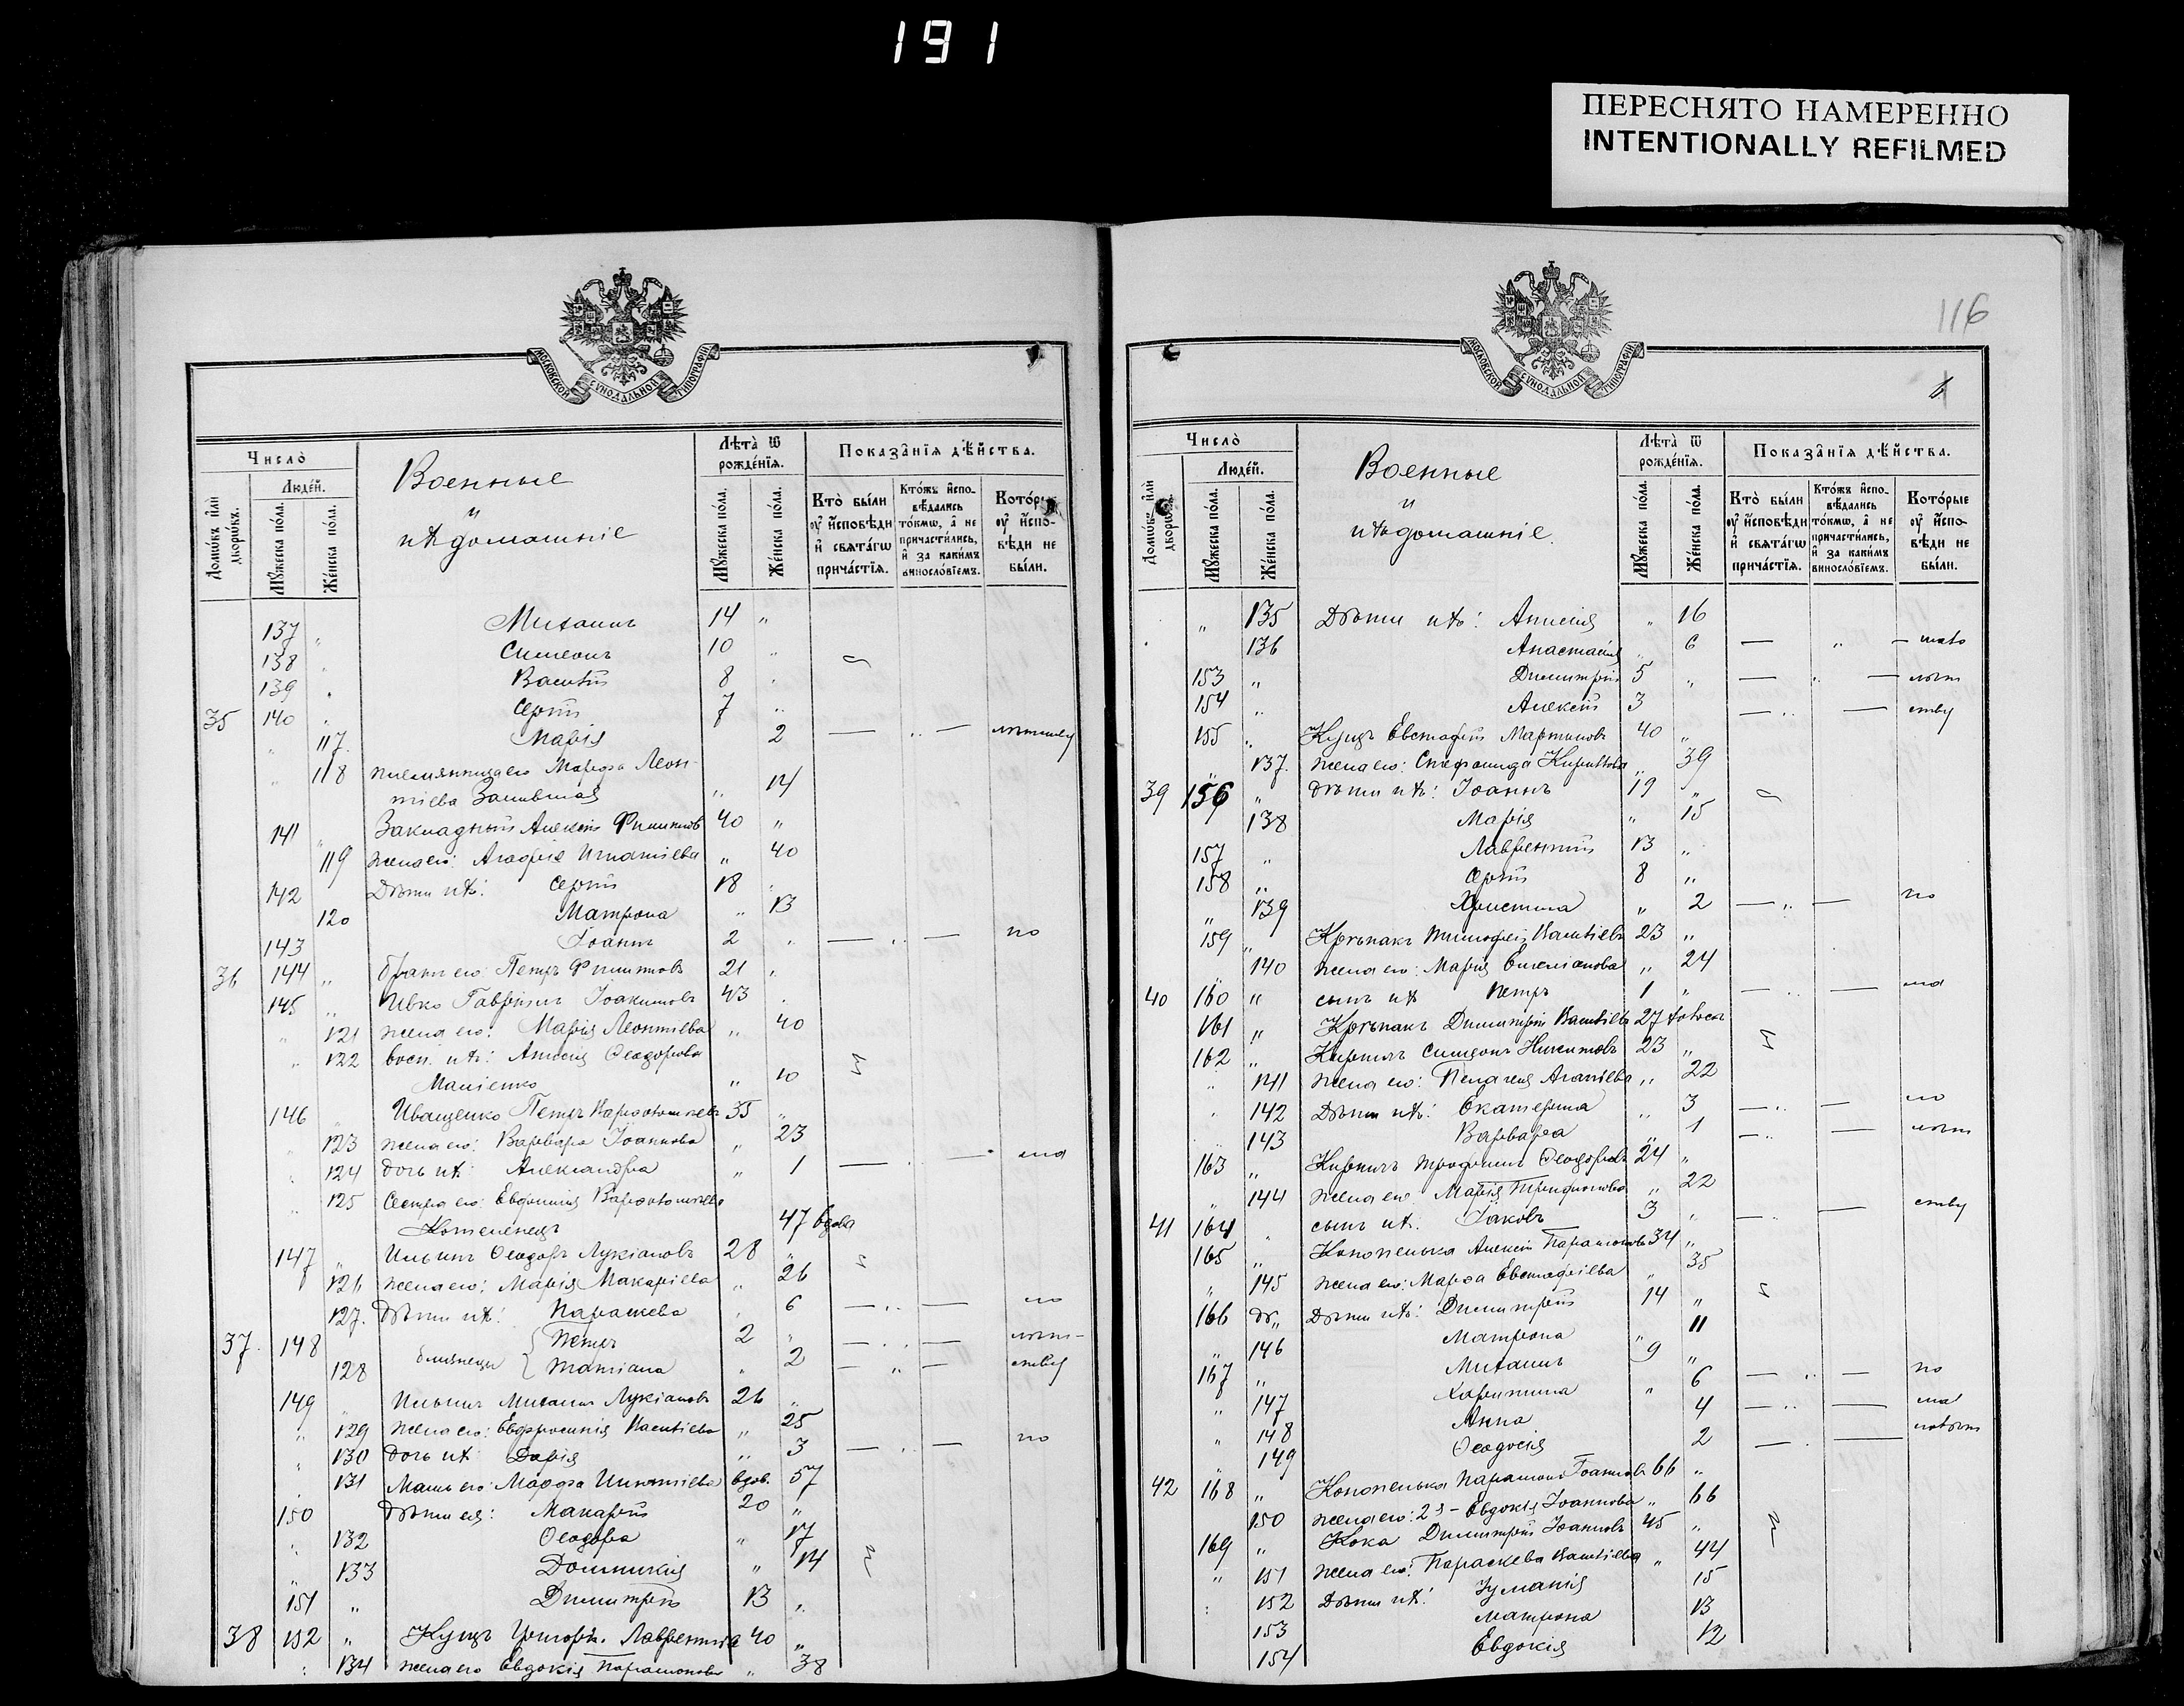 191
ПЕРЕСНЯТО НАМЕРЕННО
INTENTIONALLY REFILMED
МОСКОВСКОЙ СѴНОДАЛЬНОЙ ТИПОГРАФІИ
Число̀
Люде́й.
Домѡ́въ и҆лѝ дворѡ́въ.
Мꙋ́жеска по́ла.
Же́нска по́ла.
Военные
и
ихъ домашніе
Лѣта̀ ѿ рожде́нїѧ.
Мꙋ́жеска по́ла.
Же́нска по́ла.
Показа̑нїѧ дѣ́йства.
Кто̀ бы́ли оу҆ и҆сповѣди и҆ свѧта́гѡ прича́стїѧ.
Кто́жъ и҆сповѣдались то́кмѡ, а҆ не причасти́лись, и҆ за каки́мъ винослові́емъ.
Кото́рые оу҆ и҆сповѣди не бы́ли.
137 „ Михаилъ 14 „
138 „ Симеонъ 10 „
139 „ Василій 8 „
35 140 „ Сергій 7 „
„ 117. Марія 2 — „ —
„ 118 племянница его Марфа Леон-
тіева „ 14
141 „ Закладный Алексій Филиповъ 40 „
119 жена его: Агафія Игнатіева „ 40
142 Дѣти ихъ: Сергій 18 „
120 Матрона „ 13
143 Іоаннъ 2 „ — „ — по
36 144 „ братъ его: Петръ Филиповъ 21 „
145 „ Ивко Гавріилъ Іоакимовъ 43 „
„ 121 жена его: Марія Леонтіева „ 40
„ 122 восп. ихъ: Анисія Ѳеодорова
„ 10
146 „ Иващенко Петръ Варѳоломеевъ 35 „
„ 123 жена его: Варвара Іоаннова „ 23
„ 124 дочь ихъ Александра „ 1 — „ —
„ 125 Сестра его: Евфимія Варѳоломеева
47 вдова
147 „ Ильинъ Ѳеодоръ Лукіановъ 28 „
126 жена его: Марія Макаріева „ 26
127. Дѣти ихъ: Параскева „ 6 — „ —
37. 148 близнецы Петръ 2 „ — „ —
128 Татіана „ 2 — „ —
149 „ Ильинъ Михаилъ Лукіановъ 26 „
„ 129 жена его: Евфросинія Васильева „ 25
„ 130 дочь ихъ Дарія „ 3 — „ — по
„ 131 Мать его: Марфа Игнатіева вдов. 57
150 Дѣти ея: Макарій 20 „
„ 132 Ѳеодора „ 17
„ 133 Домникія „ 14
151 „ Димитрій 13 „
38 152 „ Куцъ Григорій Лаврентіевъ 40 „
„ 134 жена его Евдокія Парамонова „ 38
116
МОСКОВСКОЙ СѴНОДАЛЬНОЙ ТИПОГРАФІИ
Число̀
Люде́й.
Домѡ́въ и҆лѝ дворѡ́въ.
Мꙋ́жеска по́ла.
Же́нска по́ла.
Военные
и
ихъ домашніе.
Лѣта̀ ѿ рожде́нїѧ.
Мꙋ́жеска по́ла.
Же́нска по́ла.
Показа̑нїѧ дѣ́йства.
Кто̀ бы́ли оу҆ и҆сповѣди и҆ свѧта́гѡ прича́стїѧ.
Кто́жъ и҆сповѣдались то́кмѡ, а҆ не причасти́лись, и҆ за каки́мъ винослові́емъ.
Кото́рые оу҆ и҆сповѣди не бы́ли.
„ 135 Дѣти ихъ: Анисія „ 16
136 Анастасія „ 6 — „ — мало
153 „ Димитрій 5 „ — „ — лѣт
154 „ Алексій 3 — „ — ству
155 „ Куцъ Евстафій Мартиновъ 40 „
„ 137. жена его: Стефанида Кириллова „ 39
39 156 „ Дѣти ихъ: Іоаннъ 19 „
138 Марія „ 15
157 „ Лаврентій 13 „
158 „ Сергій 8 „
„ 139 Христина „ 2 — „ — по
159 „ Крѣпакъ Тимофей Васильевъ 23 „
140 жена его: Марія Емеліанова „ 24
40 160 „ сынъ ихъ Петръ 1 „ — „ —
161 „ Крѣпакъ Димитрій Васильевъ 27 холост
162 „ Кирпичъ Симеонъ Никитовъ 23 „
„ 141 жена его: Пелагея Агапіева „ 22
142 Дѣти ихъ: Екатерина „ 3 — „ —
143 Варвара „ 1 — „ — лѣт
163 „ Кирпичъ Трофимъ Ѳеодоровъ 24 „
„ 144 жена его Марія Трифонова „ 22
41 164 „ сынъ ихъ. Іаковъ 3 „ — „ — ству
165 „ Кононенька Алексій Парамоновъ 34 „
„ 145 жена его: Марѳа Евстафіева „ 35
166 „ Дѣти ихъ: Димитрій 14 „
„ 146 Матрона „ 11
167 „ Михаилъ 9 „
„ 147 Харитина „ 6 — „ — по
„ 148 Анна 4 — „ —
„ 149 Ѳеодосія 2 — „ —
42 168 „ Кононенька Парамонъ Іоанновъ 66 „
150 жена его: 2я - Евдокія Іоаннова „ 66
169 „ Кока Димитрій Іоанновъ 45 „
„ 151 жена его: Параскева Васильева „ 44
152 Дѣти ихъ: 15
153 Матрона 13
154 Евдокія 12